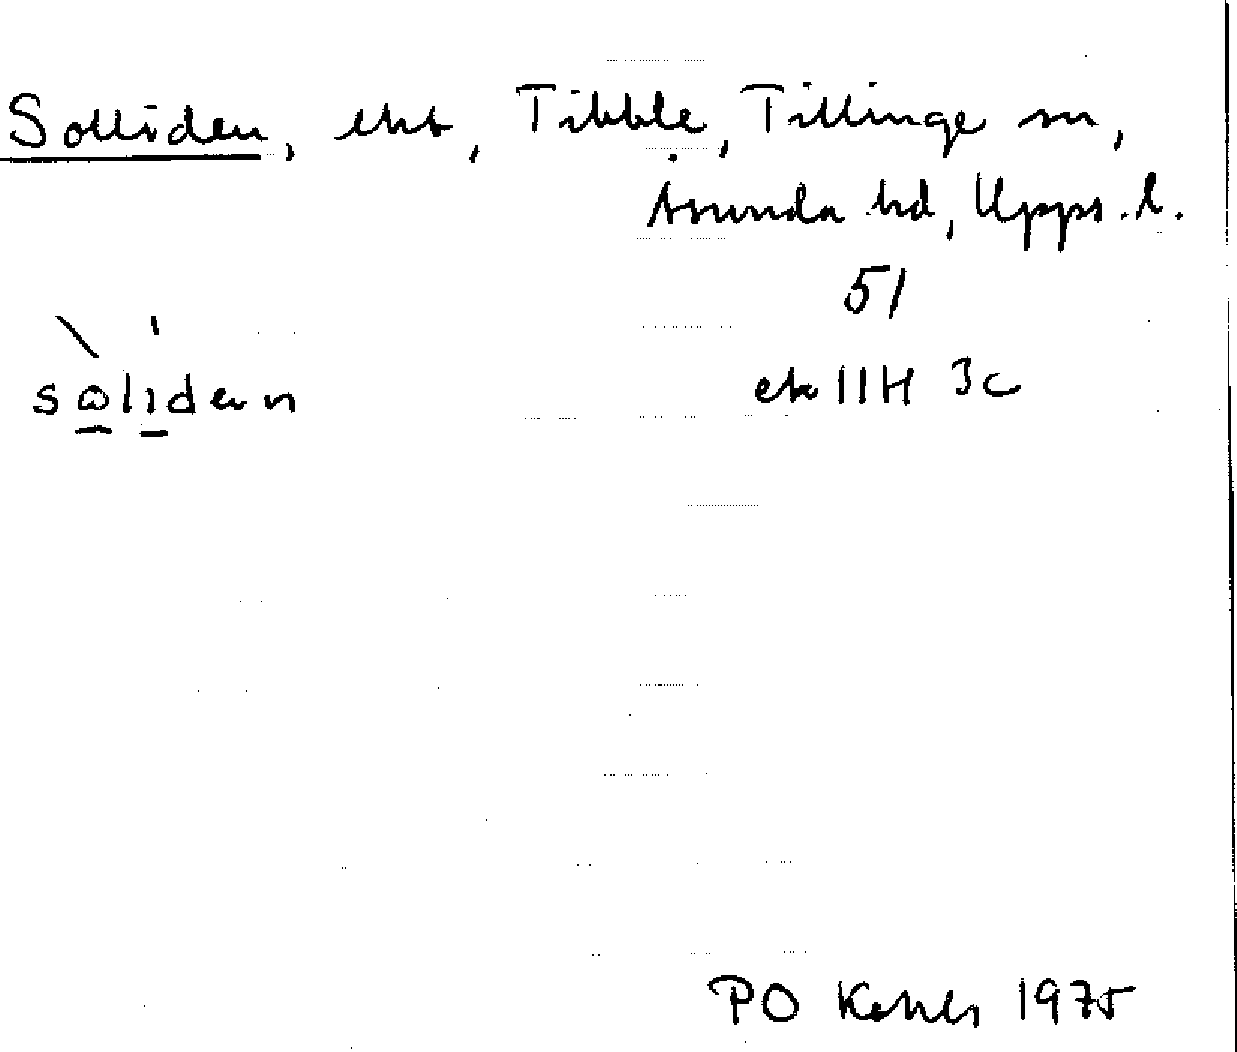 Solliden, lht, Tibble, Tillinge sn,
Åsunda hd, Upps. l.
51
ek 11H 3c
PO 1975